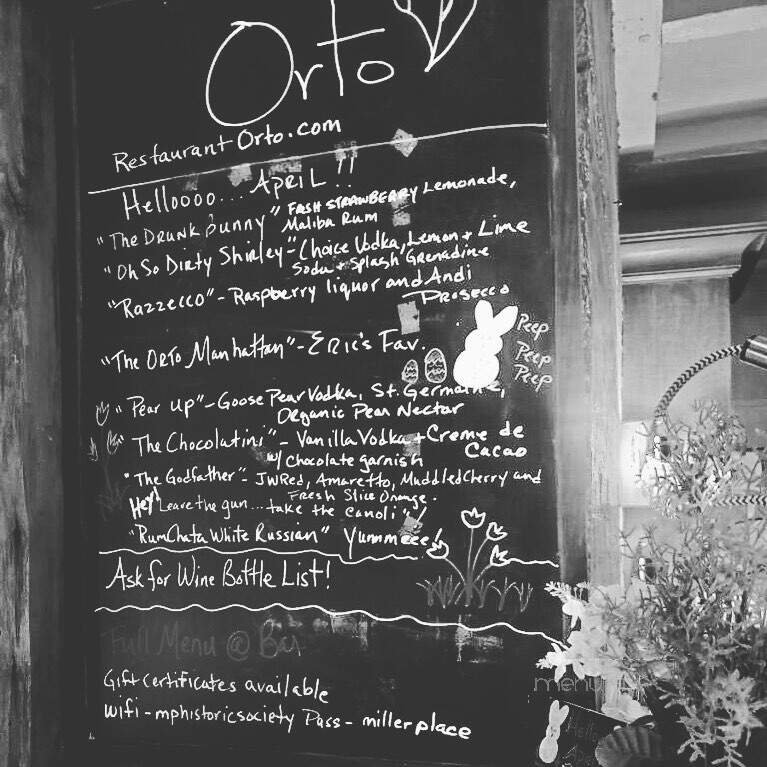 Orto
Restaurant Orto.com
Helloooo... April!!
"The Drunk Bunny" Fresh Strawberry Lemonade,
Maliba Rum
"Oh So Dirty Shirley" - Choice Vodka, Lemon + Lime
Soda + Splash Grenadine
"Razzecco" - Raspberry liquor and Andi
Prosecco
"The Orto Manhattan" - Eric's Fav.
Peep
Peep
Peep
"Pear Up" - Goose Pear Vodka, St. Germaine,
Organic Pear Nectar
"The Chocolatini" - Vanilla Vodka + Creme de
Cacao
w/ chocolate garnish
"The Godfather" - JW Red, Amaretto, Muddled Cherry and
Fresh Slice Orange.
Hey! Leave the gun... take the canoli"!
"RumChata White Russian" Yummeee!
Ask for Wine Bottle List!
Full Menu @ Bar
Gift certificates available
Wifi - mphistoricsociety Pass - millerplace
menu
Hello